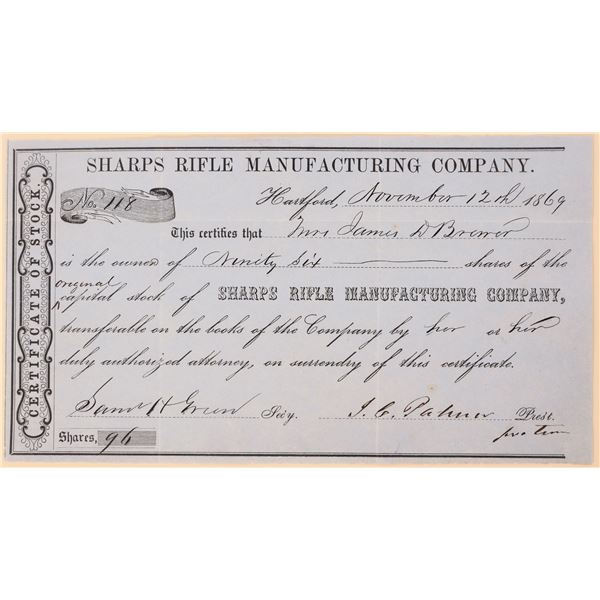 SHARPS RIFLE MANUFACTURING COMPANY.
No. 118
Hartford, November 12th 1869
This certifies that Mrs James D Brewer
is the owner of Ninety Six shares of the
original
capital stock of SHARPS RIFLE MANUFACTURING COMPANY,
transferable on the books of the Company by her or her
duly authorized attorney, on surrendry of this certificate.
Saml H Green Secy. J. C. Palmer Prest.
pro tem
Shares, 96
CERTIFICATE OF STOCK.